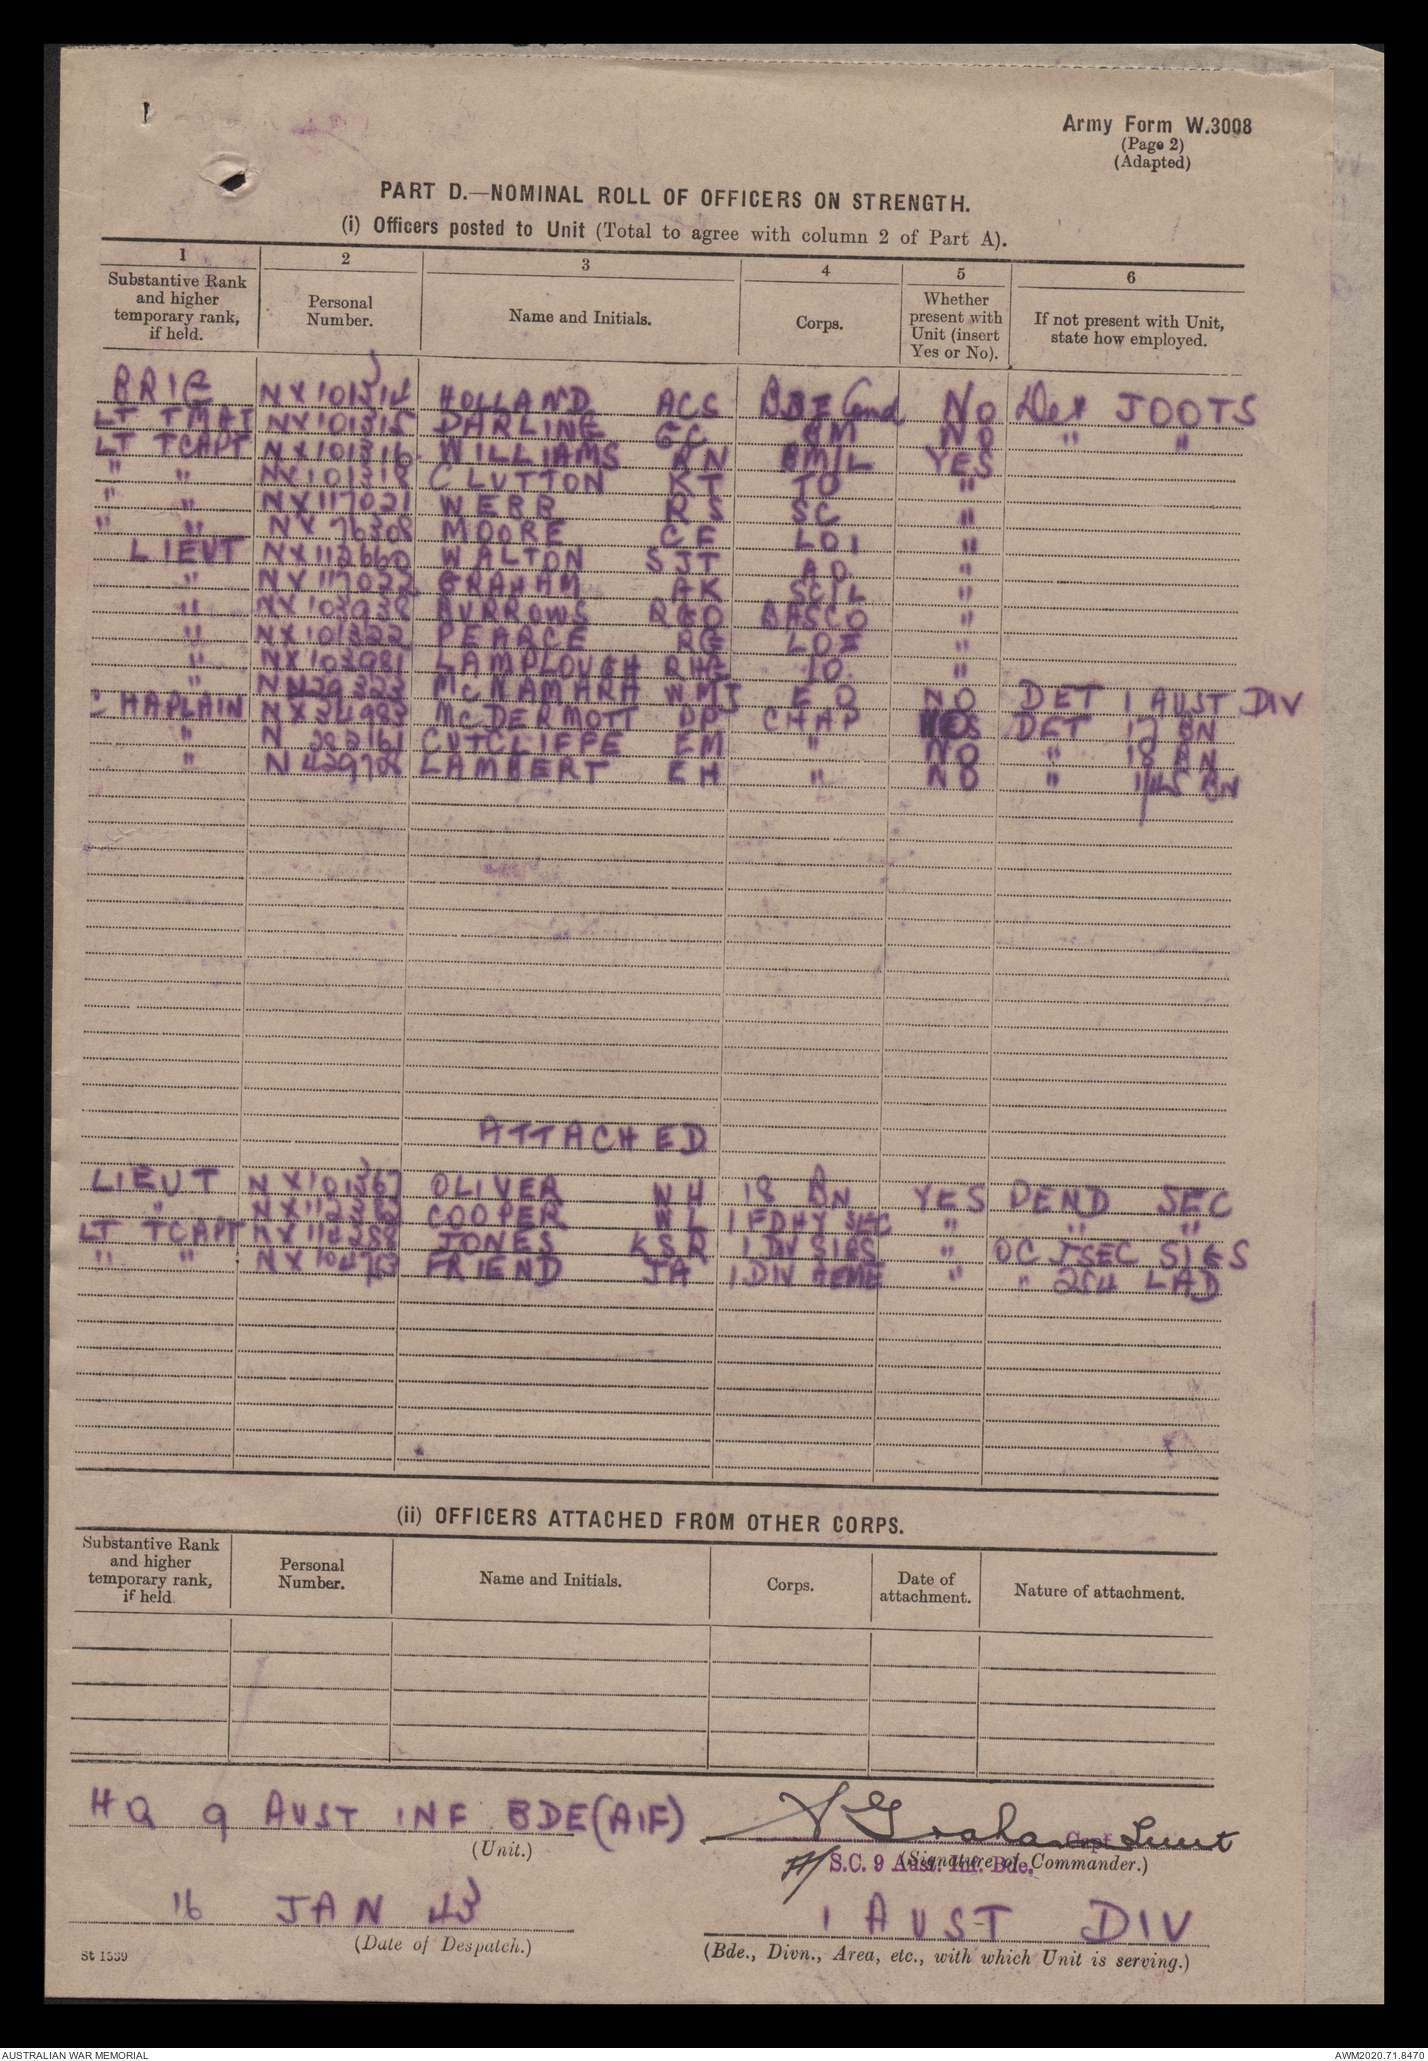 Army Form W.3008
(Page 2)
(Adapted)
PART D.—NOMINAL ROLL OF OFFICERS ON STRENGTH.
(i) Officers posted to Unit (Total to agree with column 2 of Part A).
1 2 3 4 5 6
Substantive Rank and higher temporary rank, if held. Personal Number. Name and Initials. Corps. Whether present with Unit (insert Yes or No). If not present with Unit, state how employed.
BRIG NX101314 HOLLAND ACS BDE Comd NO Det JOOTS
LT TMAJ NX101315 DARLING GC BM NO " "
LT TCAPT NX101316 WILLIAMS RN BM/L YES
" " NX101318 CLUTTON KT TO "
" " NX117021 WEBB RS SC "
" " NX76308 MOORE CE LO1 "
LIEUT NX112660 WALTON SJT AO "
" NX117022 GRAHAM AK SC/L "
" NX103938 BURROWS RGO BASCO "
" NX101322 PEARCE RG LO "
" NX103981 LAMPLOUGH RHG IO "
" McNAMARA WMJ E O NO DET 1 AUST DIV
CHAPLAIN NX34983 McDERMOTT DP CHAP DET 17 BN
" N 282161 CUTCLIFFE EM " NO " 18 BN
" N 429708 LAMBERT EH " NO " 1/45 BN
ATTACHED
LIEUT NX101367 OLIVER WH 18 BN YES DEND SEC
" NX112362 COOPER WL 1 FD HY SEC " " "
LT TCAPT NX112388 JONES KSR 1 DIV SIGS " OC J SEC SIGS
" " FRIEND JA 1 DIV AEME " " 254 LAD
(ii) OFFICERS ATTACHED FROM OTHER CORPS.
Substantive Rank and higher temporary rank, if held. Personal Number. Name and Initials. Corps. Date of attachment. Nature of attachment.
HQ 9 AUST INF BDE (AIF)
(Unit.)
A Graham Lieut
Capt
(Signature of Commander.)
S.C. 9 Aust. Inf. Bde.
16 JAN 43
(Date of Despatch.)
1 AUST DIV
(Bde., Divn., Area, etc., with which Unit is serving.)
St 1539
AUSTRALIAN WAR MEMORIAL
AWM2020.71.8470